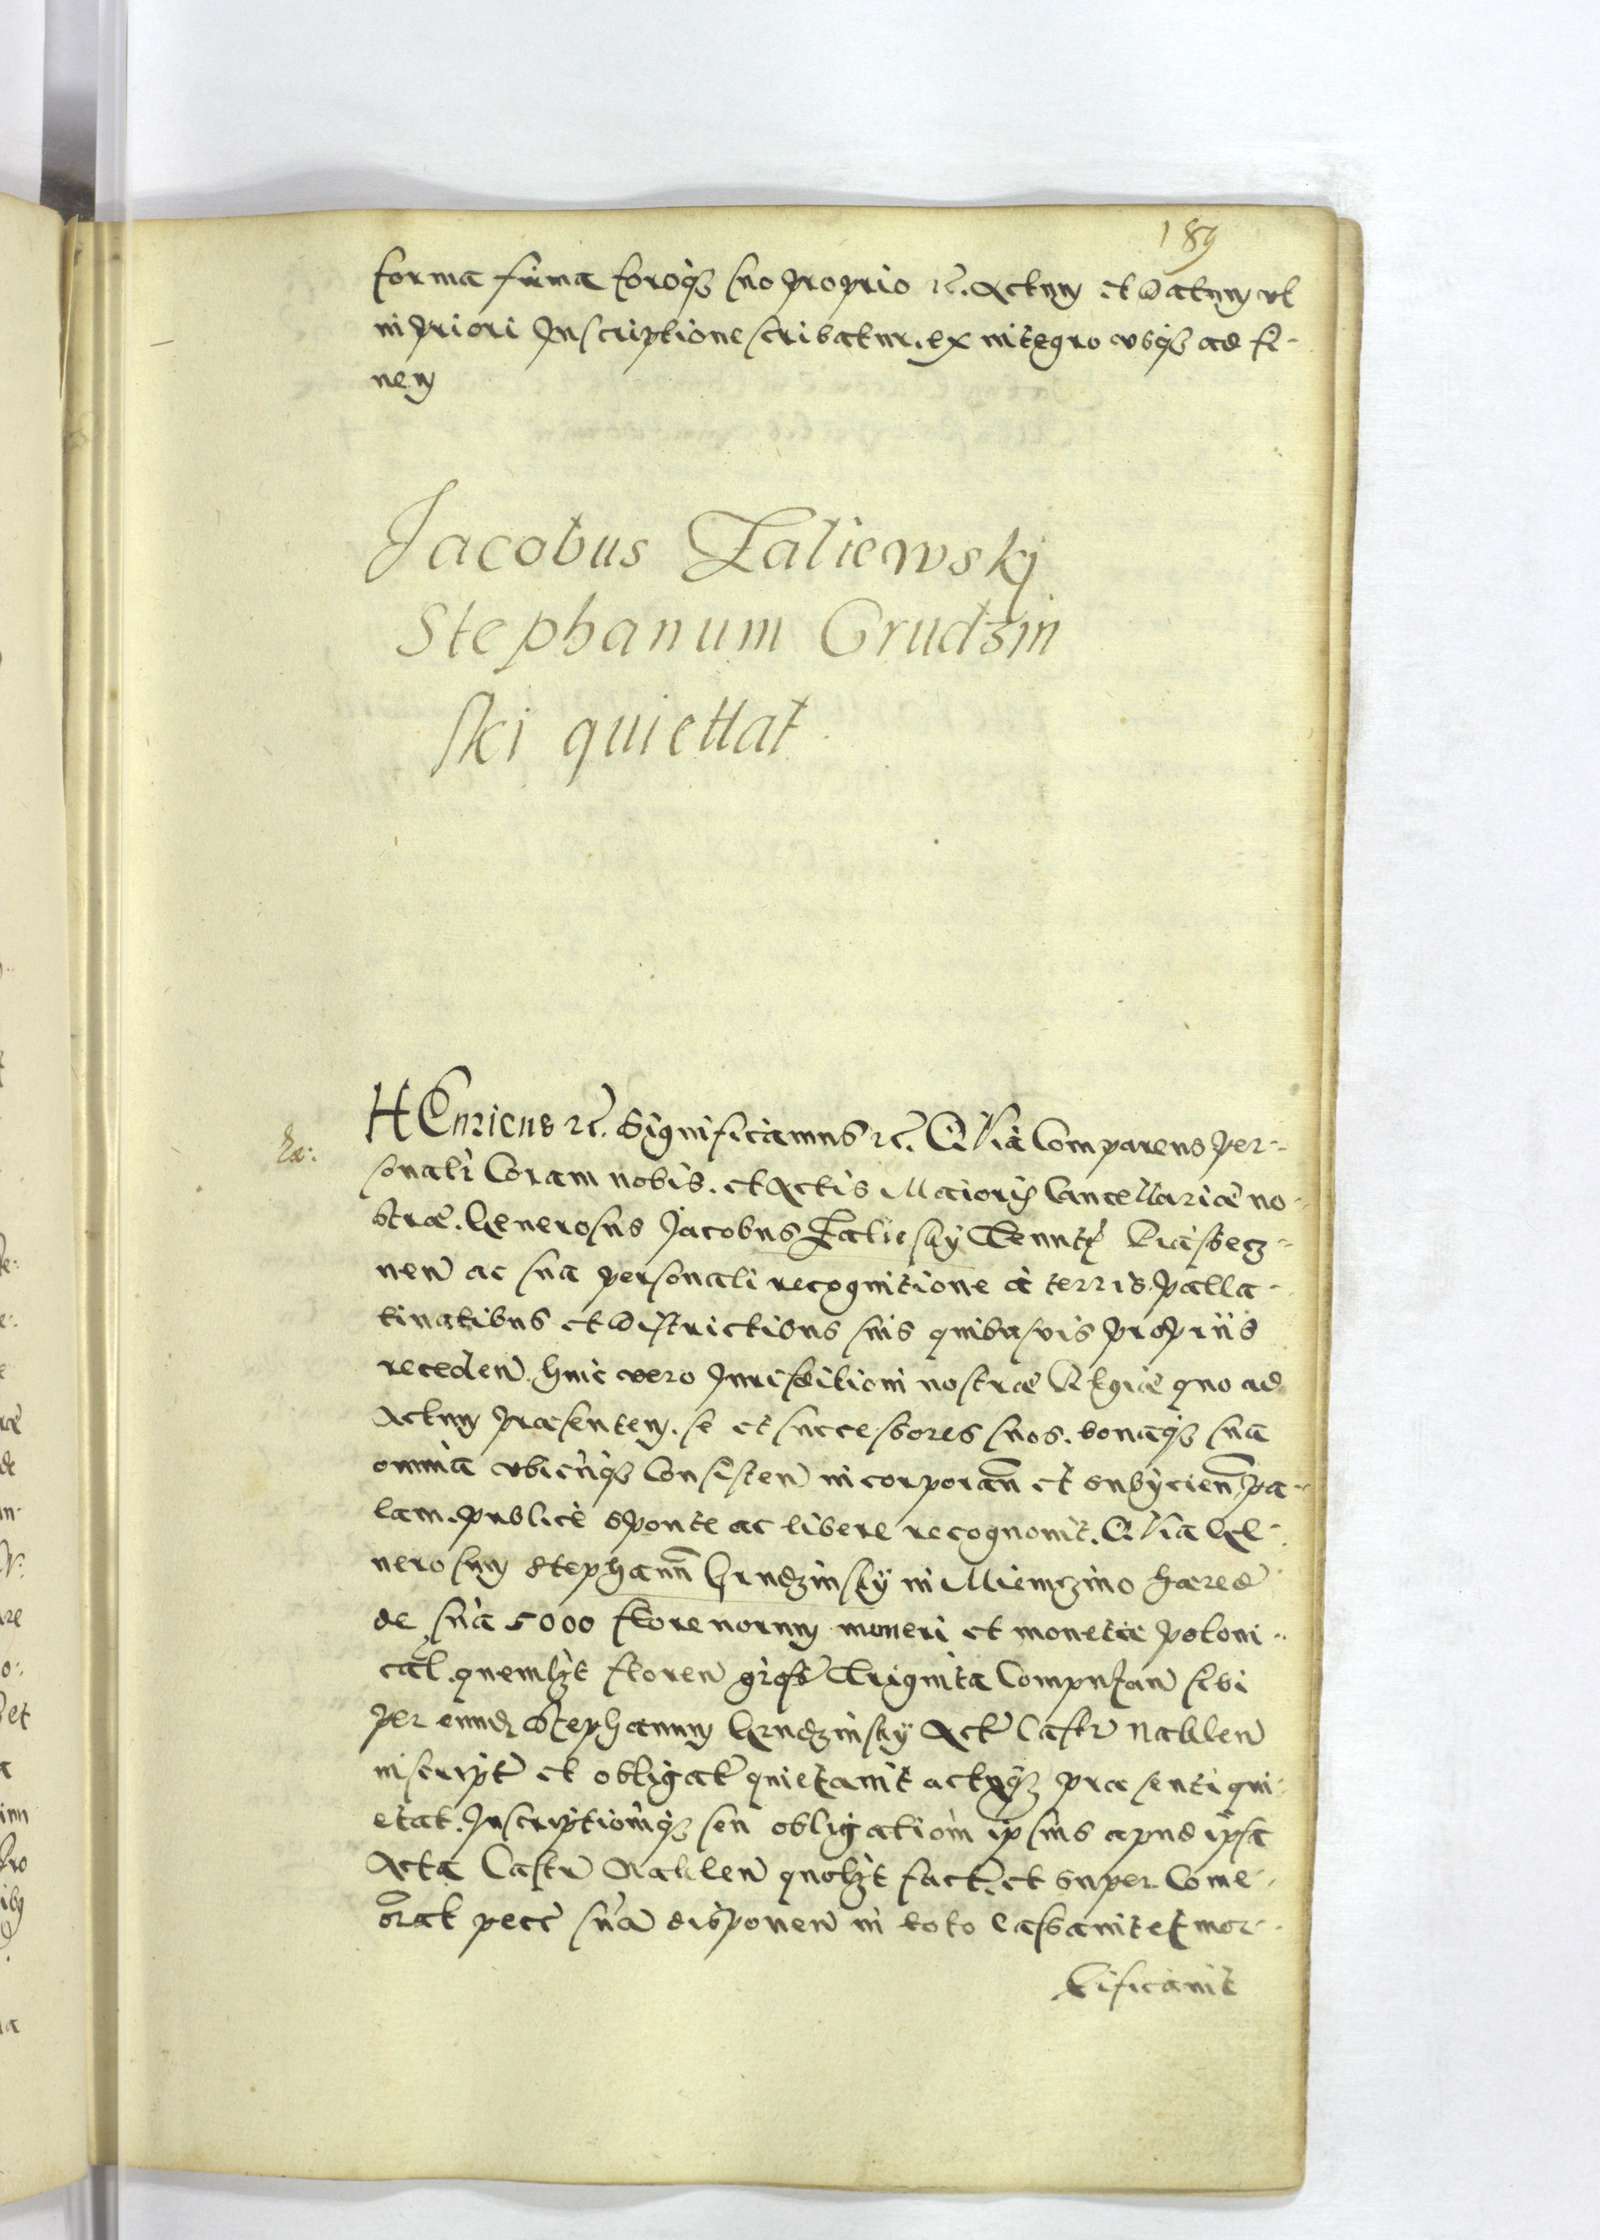 189
forma suma foroq3 suo proprio rc. Actum et Datum vt
in priori Inscriptione scribatur. ex integro vsq3 ad fi-
nem
Jacobus Zaliewskj
Stephanum Grudzin
ski quiettat
HEnricus rc. Significamus rc. Quia Comparens per-
sonali Coram nobis. et Actis Maioris Cancellariæ no-
stræ. Generosus Jacobus Zaliesky Tenut
nen ac sua personali recognitione à terris. Palla-
tinatibus et Districtibus suis quibusvis proprijs
receden. huic vero Jurisditioni nostræ Regiæ quo ad
Actum præsentem. se et successores suos. bonaq3 sua
omnia vbicunq3 Consisten incorporan et subijcien. pa-
lam. publicè sponte ac libere recognouit. Quia Ge-
nerosum Stephanu Grudzinsky in Miemczino hæred
de sua 5000 florenorum muneri et monetæ Poloni-
cal. quemlzt floren gross Triginta Computan sibi
per eund Stephanum Grudzinsky Act Castr Naklen
inscript et obligat quietauit actuq3 præsenti qui-
etat. Inscriptionq3 seu obligation ipsius apud ipsa
Acta Castr Naklen quolzt fact. et super Come-
orat pecc sua disponen in toto Cassauit et mor-
tificauit